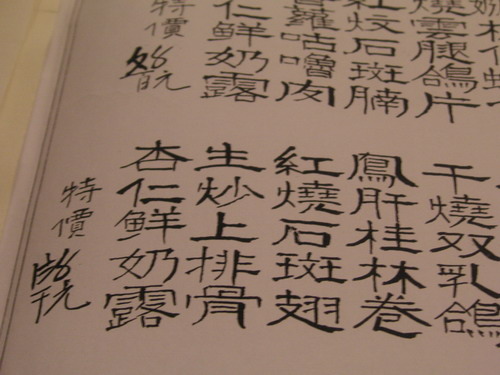 燒雲腿鴿片
紅炆石斑腩
蘿咕嚕肉
仁鮮奶露
特價
干燒双乳鴿
鳳肝桂林卷
紅燒石斑翅
生炒上排骨
杏仁鮮奶露
特價